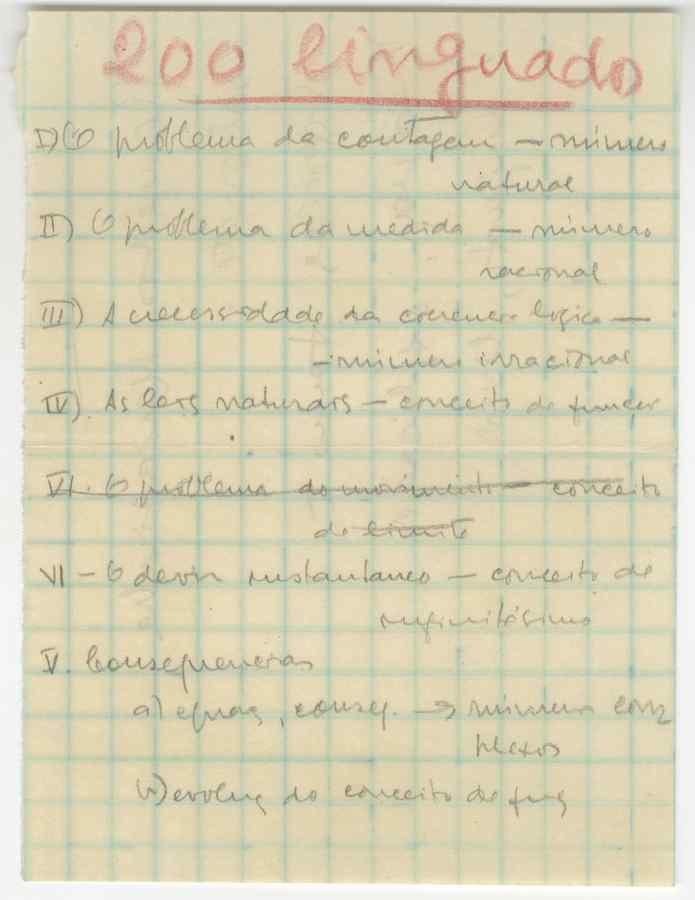 200 linguado
I) O problema da contagem — número
natural
II) O problema da medida — número
racional
III) A necessidade da coerencia logica —
— número irracional
IV) As leis naturais — conceito de função
VI. O problema do movimento — conceito
de limite
VI — O devir instantaneo — conceito de
infinitésimo
V. Consequencias
a) equaç, conseq. → números com
plexos
b) evoluç do conceito de funç